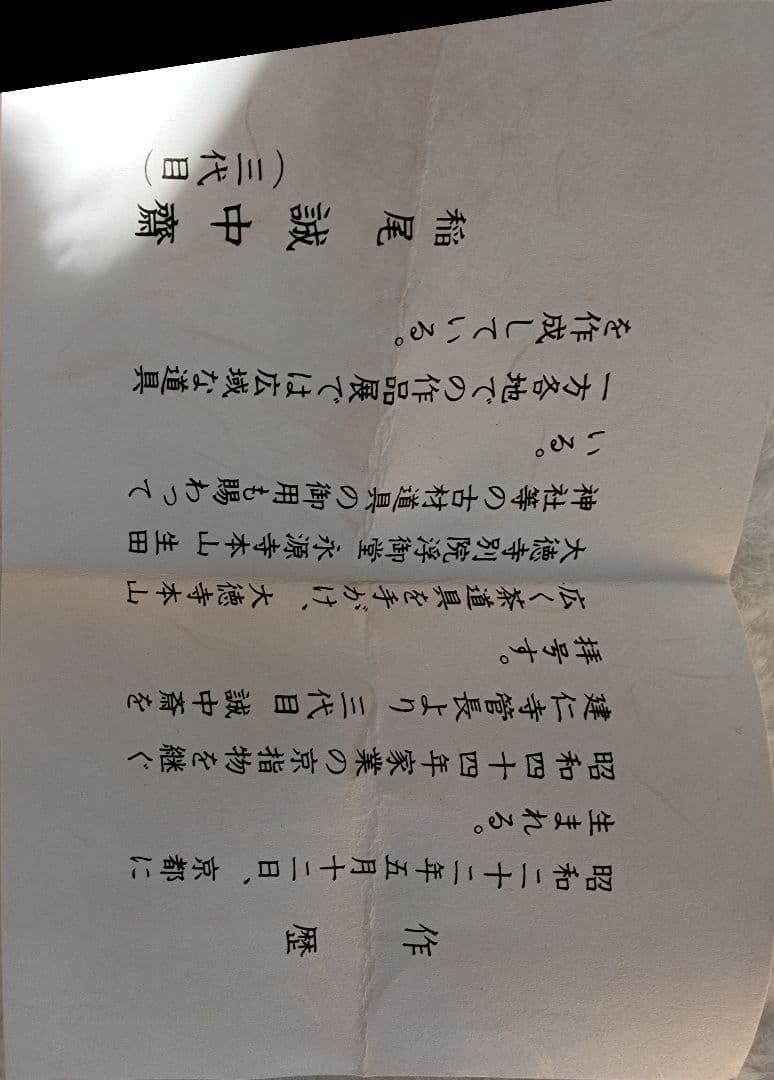 作歴
昭和二十二年五月十二日、京都に
生まれる。
昭和四十四年家業の京指物を継ぐ
建仁寺管長より 三代目 誠中斎を
拝号す。
広く茶道具を手がけ、大徳寺本山
大徳寺別院浮御堂 永源寺本山 生田
神社等の古材道具の御用も賜わって
いる。
一方各地での作品展では広域な道具
を作成している。
稲尾誠中齋
(三代目)